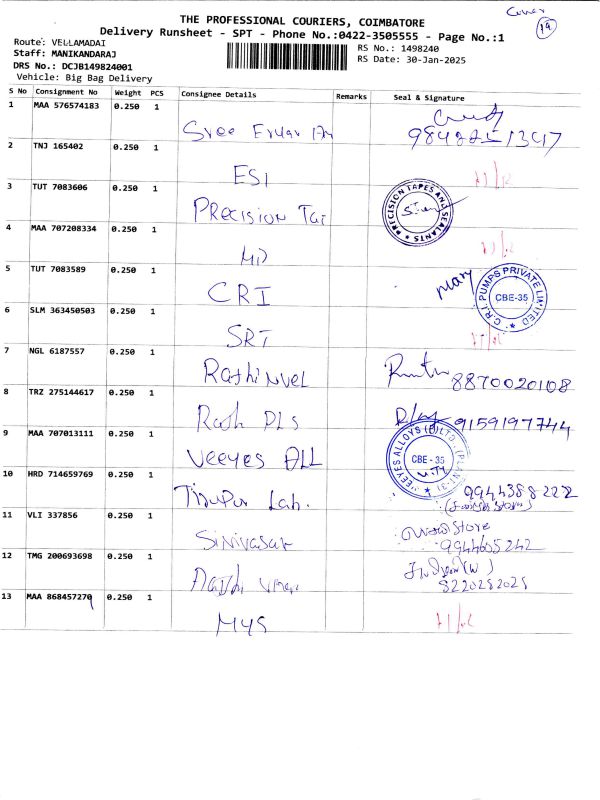 Cover
19
THE PROFESSIONAL COURIERS, COIMBATORE
Delivery Runsheet - SPT - Phone No.:0422-3505555 - Page No.:1
Route: VELLAMADAI
Staff: MANIKANDARAJ
DRS No.: DCJB149824001
Vehicle: Big Bag Delivery
RS No.: 1498240
RS Date: 30-Jan-2025
S No Consignment No Weight PCS Consignee Details Remarks Seal & Signature
1 MAA 576574183 0.250 1 Sree
2 TNJ 165402 0.250 1 ESI
3 TUT 7083606 0.250 1 Precision
PRECISION TAPES AND SEALANTS
4 MAA 707208334 0.250 1
5 TUT 7083589 0.250 1 CRI
C.R.I. PUMPS PRIVATE LIMITED
CBE-35
6 SLM 363450503 0.250 1 SRT
7 NGL 6187557 0.250 1 8870020108
8 TRZ 275144617 0.250 1 9159197744
9 MAA 707013111 0.250 1 Veeyes
VEEYES ALLOYS
CBE - 35
10 HRD 714659769 0.250 1 Tirupur Lab. 9944388222
11 VLI 337856 0.250 1 Store
9944605242
12 TMG 200693698 0.250 1 8220282028
13 MAA 868457270 0.250 1